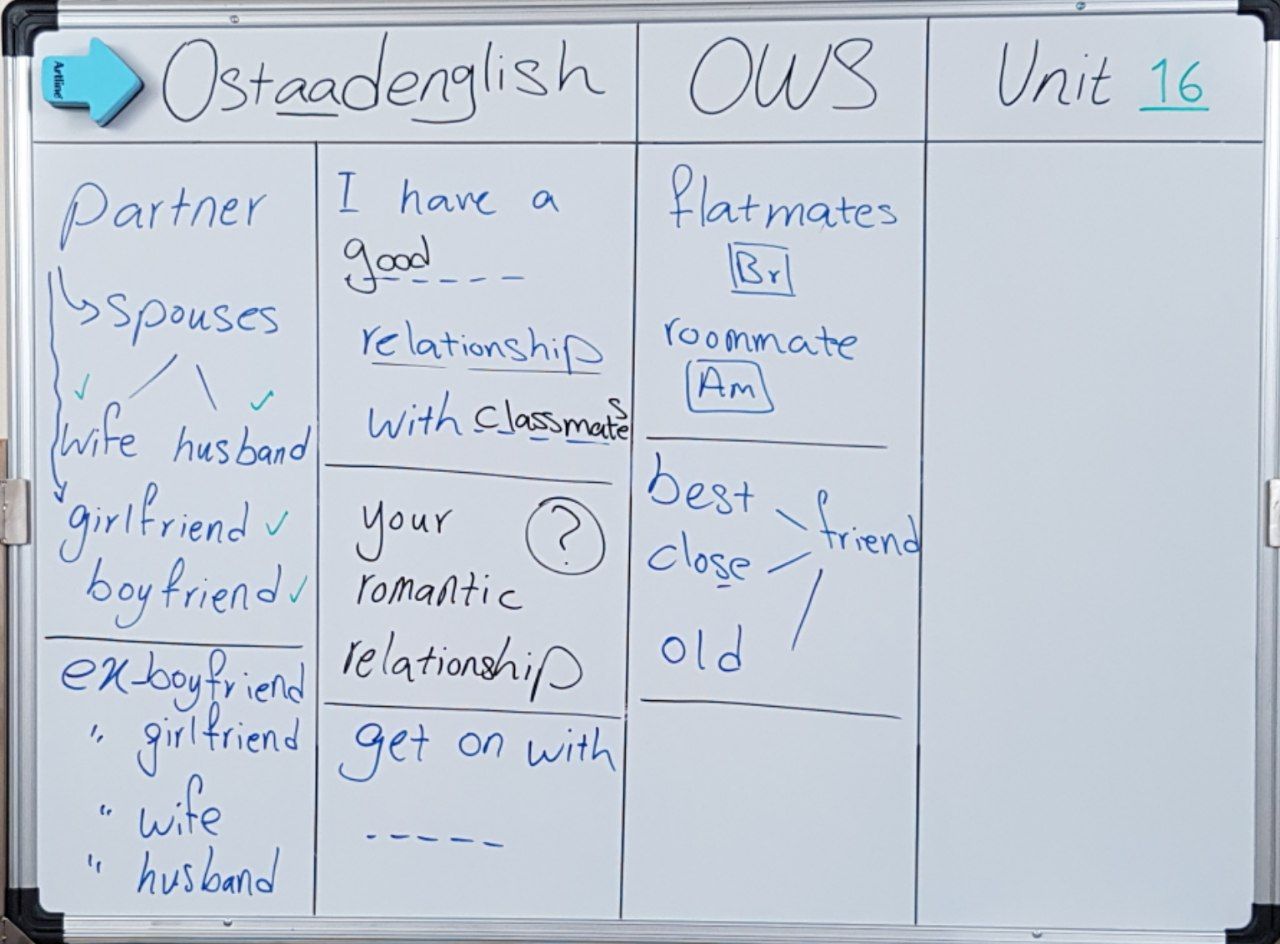 Artline
Ostaadenglish
OWS
Unit 16
partner
spouses
wife husband
girlfriend
boyfriend
ex-boyfriend
" girlfriend
" wife
" husband
I have a
good
relationship
with classmates
your
?
romantic
relationship
get on with
flatmates
Br
roommate
Am
best
friend
close
old